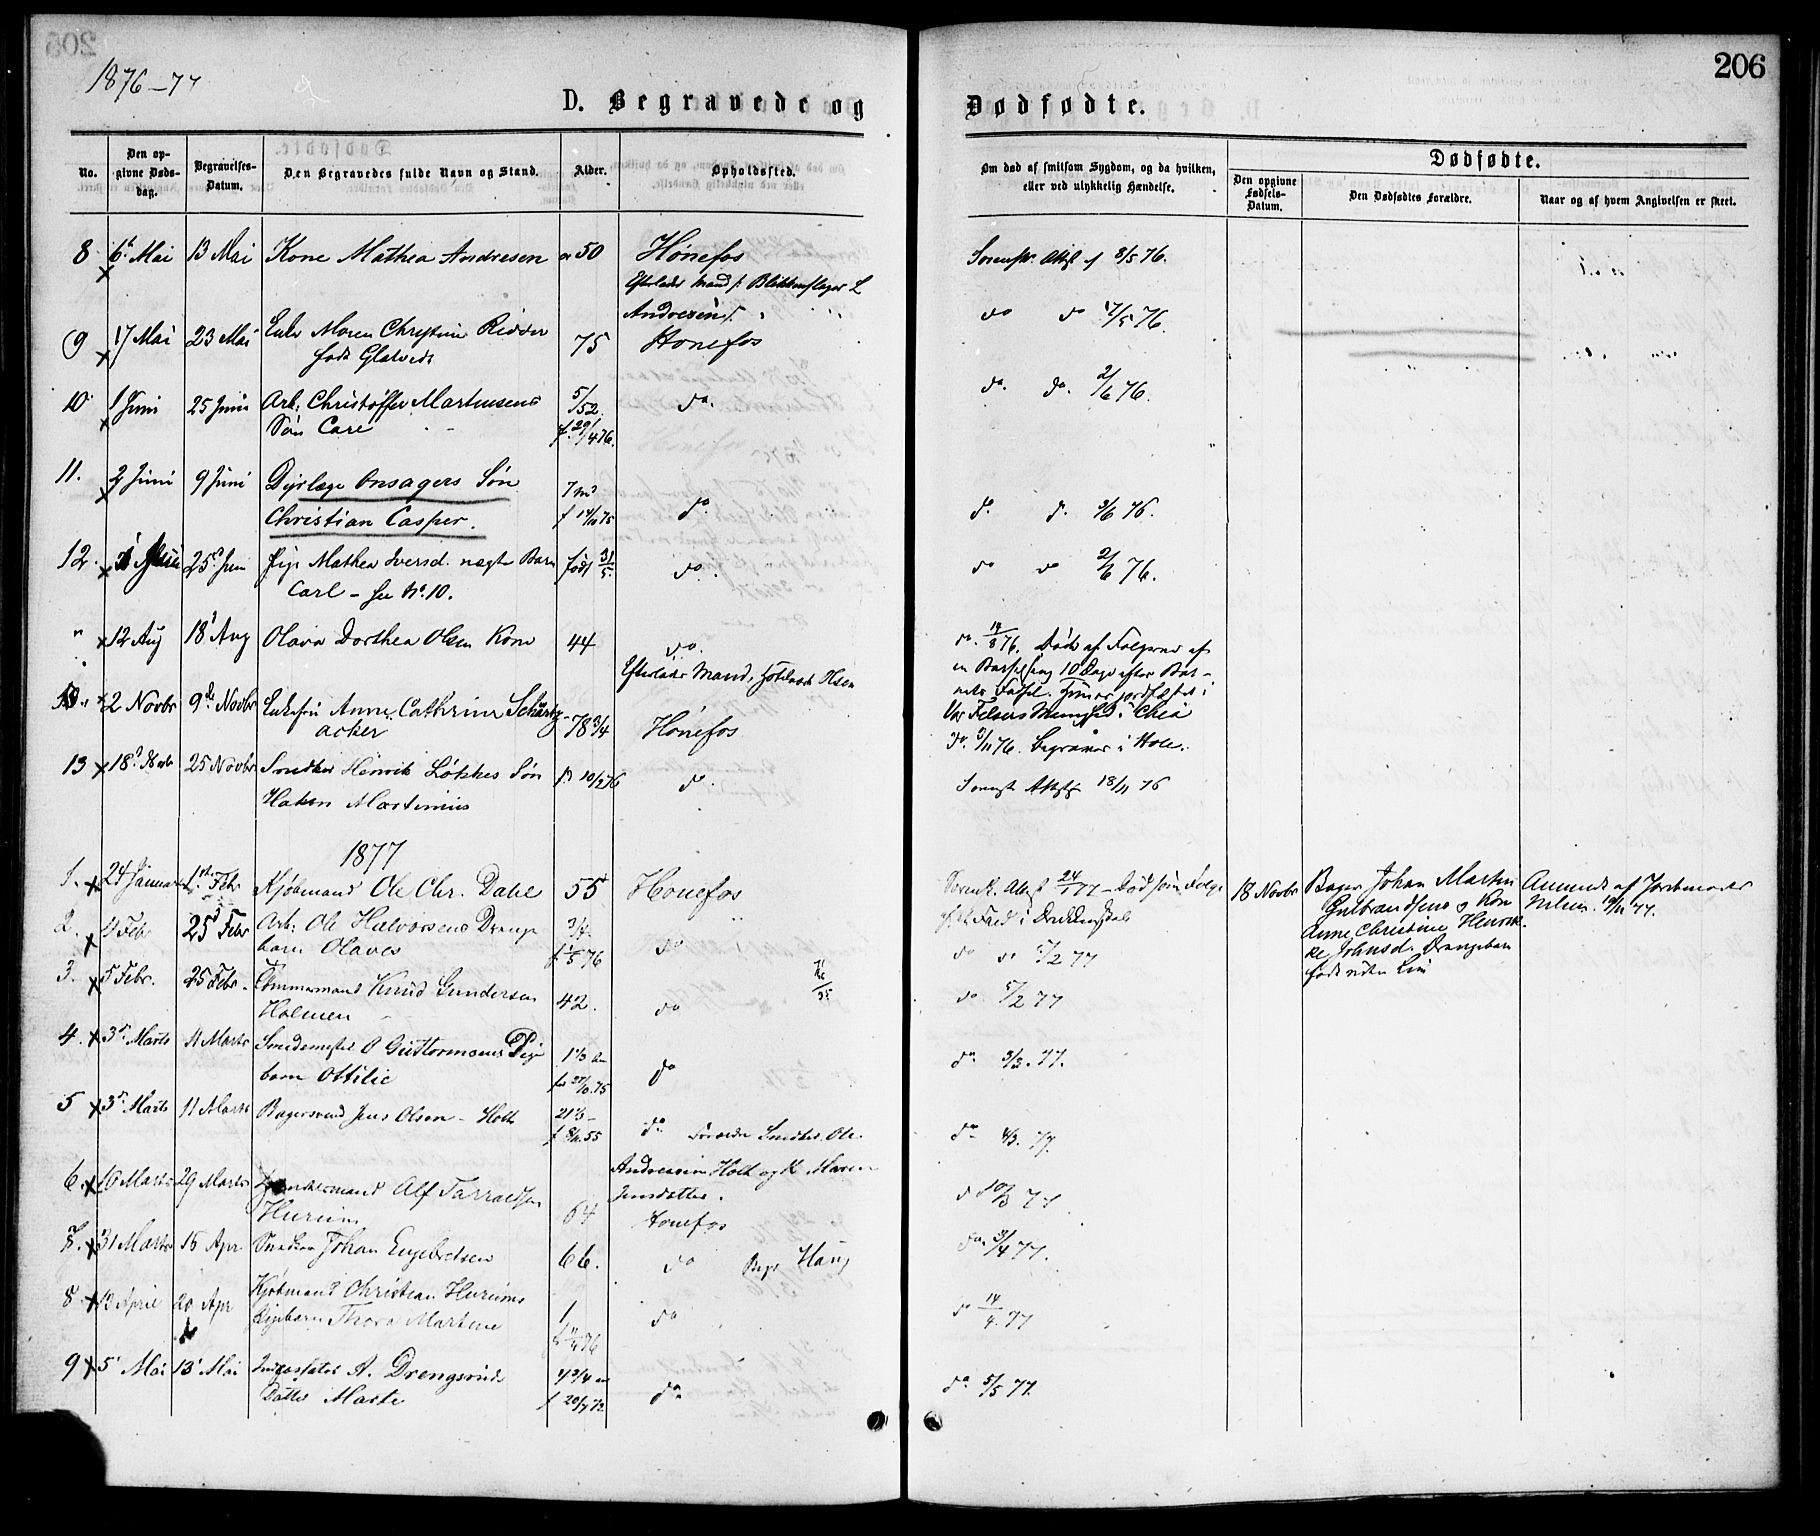 206
1876-77
D. Begravede og
Dødsfødte.
No.
Den opgivne Dødsdag.
Begravelses-Datum.
Den Begravedes fulde Navn og Stand.
Alder.
Opholdssted.
Om død af smitsom Sygdom, og da hvilken, eller ved ulykkelig Hændelse.
Dødfødte.
Den opgivne Fødsels-Datum.
Den Dødfødtes Forældre.
Naar og af hvem Angivelsen er skeet.
8 6 Mai 13 Mai Kone Mathea Andresen 50 Hønefos
Efterlader Mand f. Blikkenslager L
Andresen
8/5 76.
9 17 Mai 23 Mai Enke Maren Christine Ridder 75 Honefos
født Glatved
do do 17/5 76.
10 1 Juni 25 Juni Arb: Christoffer Martinsens 5/52 do.
Søn Carl f. 29/4 76.
do. do. 2/6 76.
11. 2 Juni 9 Juni Dyrlæge Onsagers Søn 7 m do.
Christian Casper. f 14/11 75
do. do. 3/6 76.
12. Juni 25 Jun Pige Mathea Iversd. uægte Barn født 31/5. do.
Carl - see No. 10.
do do 2/6 76.
" 12 Aug 18 Aug Olava Dorthea Olsen Kone 44 do.
Efterlader Mand, Olsen
do. 14/8 76. Døde af Følgerne af
en Barselseng 10 Dage efter Barnets Fødsel.
jordfæstet i
Vor Frelsers Menighed i Chria
2 Novbr 9de Novbr Enkefru Anne Cathrine Schartz-
acker 78 3/4 Hønefos
do. 3/11 76. Begraves i Hole.
13 18 25 Novbr Snedker Henrik Løkkes Søn f. 10/2 76 do.
Hakon Martinius
Attest 18/11 76
1877
1. 24 Januar 1ste Febr Kjøbmand Ole Chr. Dahl 55 Honefos
24/1 77 - Død som Følge
18 Novbr Bager Johan Martin
Gulbrandsens og Kone
Anne Christine Henrik-
ke Johnsd. Drengebarn
født uden Liv
Anmeldt af Jordemoder
Nilsen 19/11 77.
2. 4 Febr 25 Febr Arb: Ole Halvorsens Drenge 3/4 do
barn Olaves f 1/5 76
do do 5/2 77
3. 5 Febr. 25 Febr. Tømmermand Knud Gundersen 42. do
Holmen
do 5/2 77
4. 3 Marts 11 Marts Smedemester O Guttormsens Pige do
barn Ottilie
do. 3/3. 77.
5 3 Marts 11 Marts Bagersvend Jens Olsen - Holt 21 1/3 do
f 8/11. 55
Forældre Snedker Ole
Andreasen Holt og K Maren
Jensdatter.
do. 4/3. 77.
6. 10 Marts 29 Marts Alf Tarraldsen 64 Honefos
Hurum
do 10/3 77.
7. 31 Marts 15 Apr Snedker Johan Engebretsen 66. do Haug
do. 3/4 77.
8 12 April 20 Apr Kjøbmand Christian Hurums 1 do
Pigebarn Thora Martine
do 14/4. 77
9 5 Mai 13 Mai A. Drengsruds 4 3/4 do.
Datter Marte f 20/7 72
do. 5/5 77.